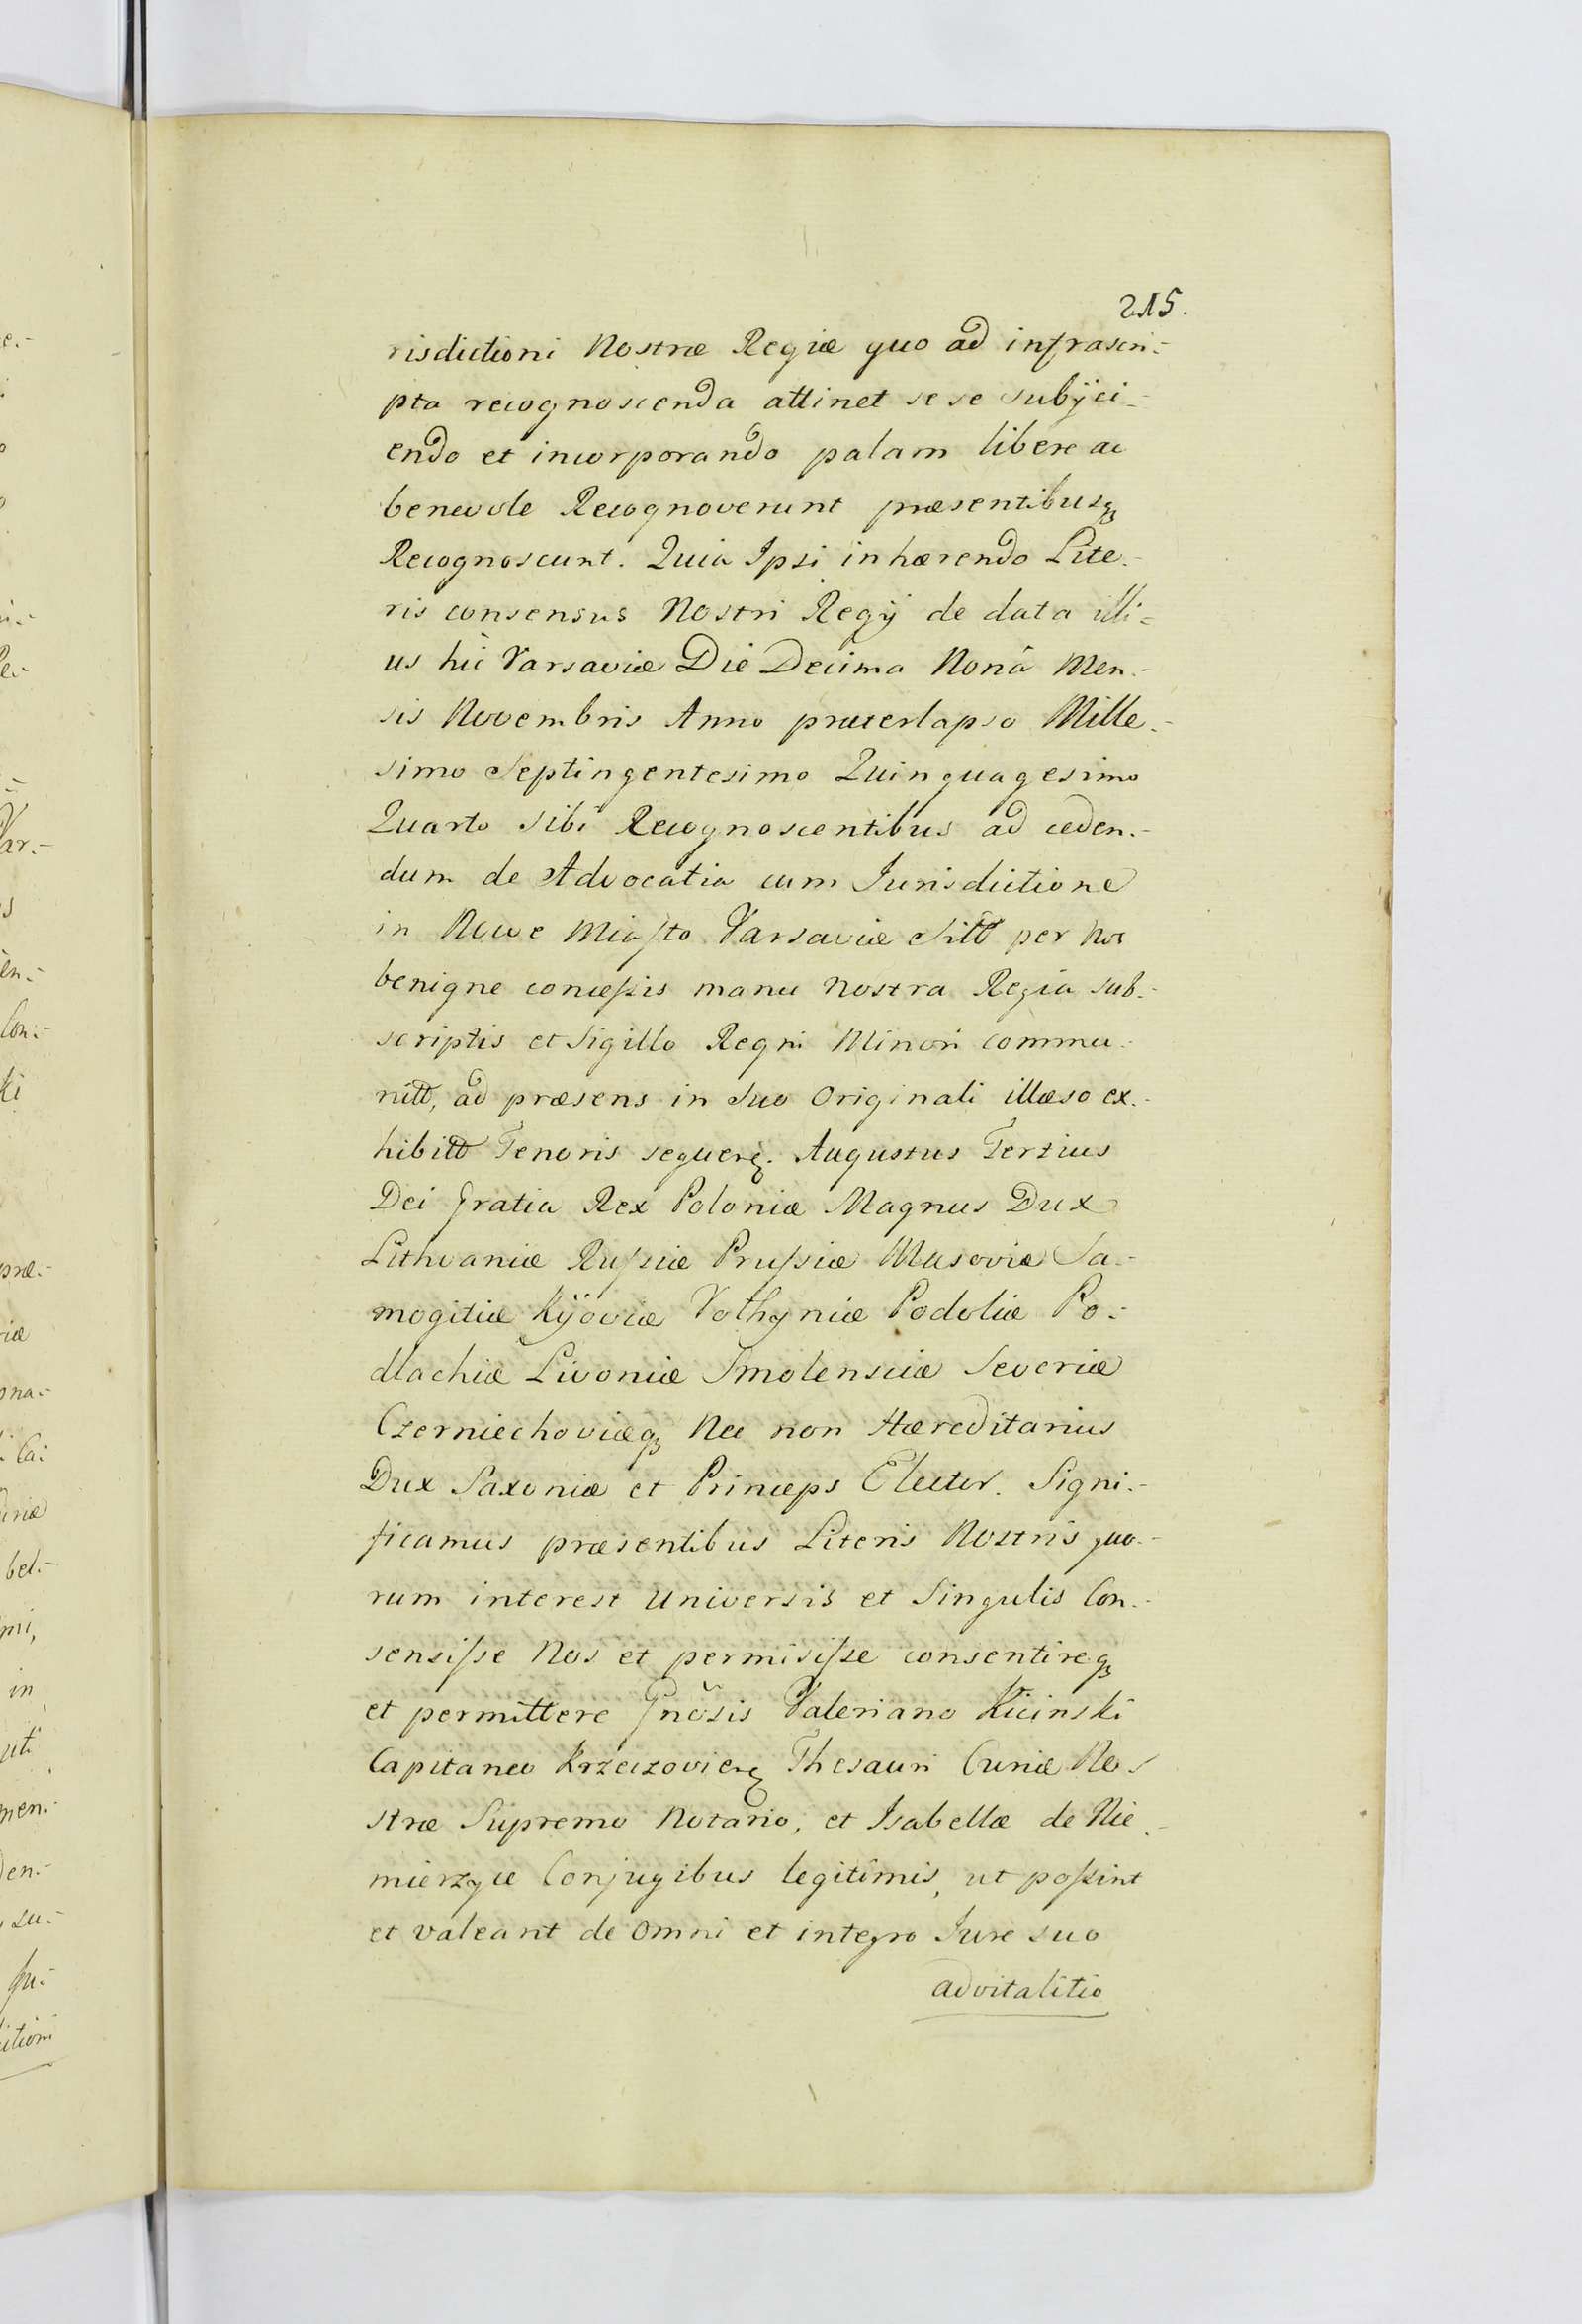 215.
risdictioni Nostræ Regiæ quo ad infrascri-
pta recognoscenda attinet se se subÿci-
endo et incorporando palam libere ac
benevole Recognoverunt præsentibusqꝫ
Recognoscunt. Quia Ipsi inhærendo Lite-
ris consensus Nostri Regÿ de data illi-
us hic Varsaviæ Die Decima Nonâ Men-
sis Novembris Anno præterlapso Mille-
simo Septingentesimo Quinquagesimo
Quarto sibi Recognoscentibus ad ceden-
dum de Advocatia cum Jurisdictione
in Nowe Miaſto Varsaviæ Sitt per Nos
benigne conceſsis manu Nostra Regia sub-
scriptis et Sigillo Regni Minori commu-
nitt, ad præsens in Suo Originali illæso ex-
hibitt Tenoris sequen. Augustus Tertius
Dei Gratia Rex Poloniæ Magnus Dux
Lithvaniæ Ruſsiæ Pruſsiæ Masoviæ Sa-
mogitiæ Kÿoviæ Volhyniæ Podoliæ Po-
dlachiæ Livoniæ Smolensciæ Severiæ
Czerniechoviæqꝫ Nec non Hæreditarius
Dux Saxoniæ et Princeps Elector. Signi-
ficamus præsentibus Literis Nostris quo-
rum interest Universis et Singulis Con-
sensiſse Nos et permisiſse consentireqꝫ
et permittere Gnõsis Valeriano Kicinski
Capitaneo Krzeczovien Thesauri Curiæ No-
stræ Supremo Notario, et Isabellæ de Nie-
mierzyce Conjugibus legitimis, ut poſsint
et valeant de Omni et integro Jure suo
advitalitio